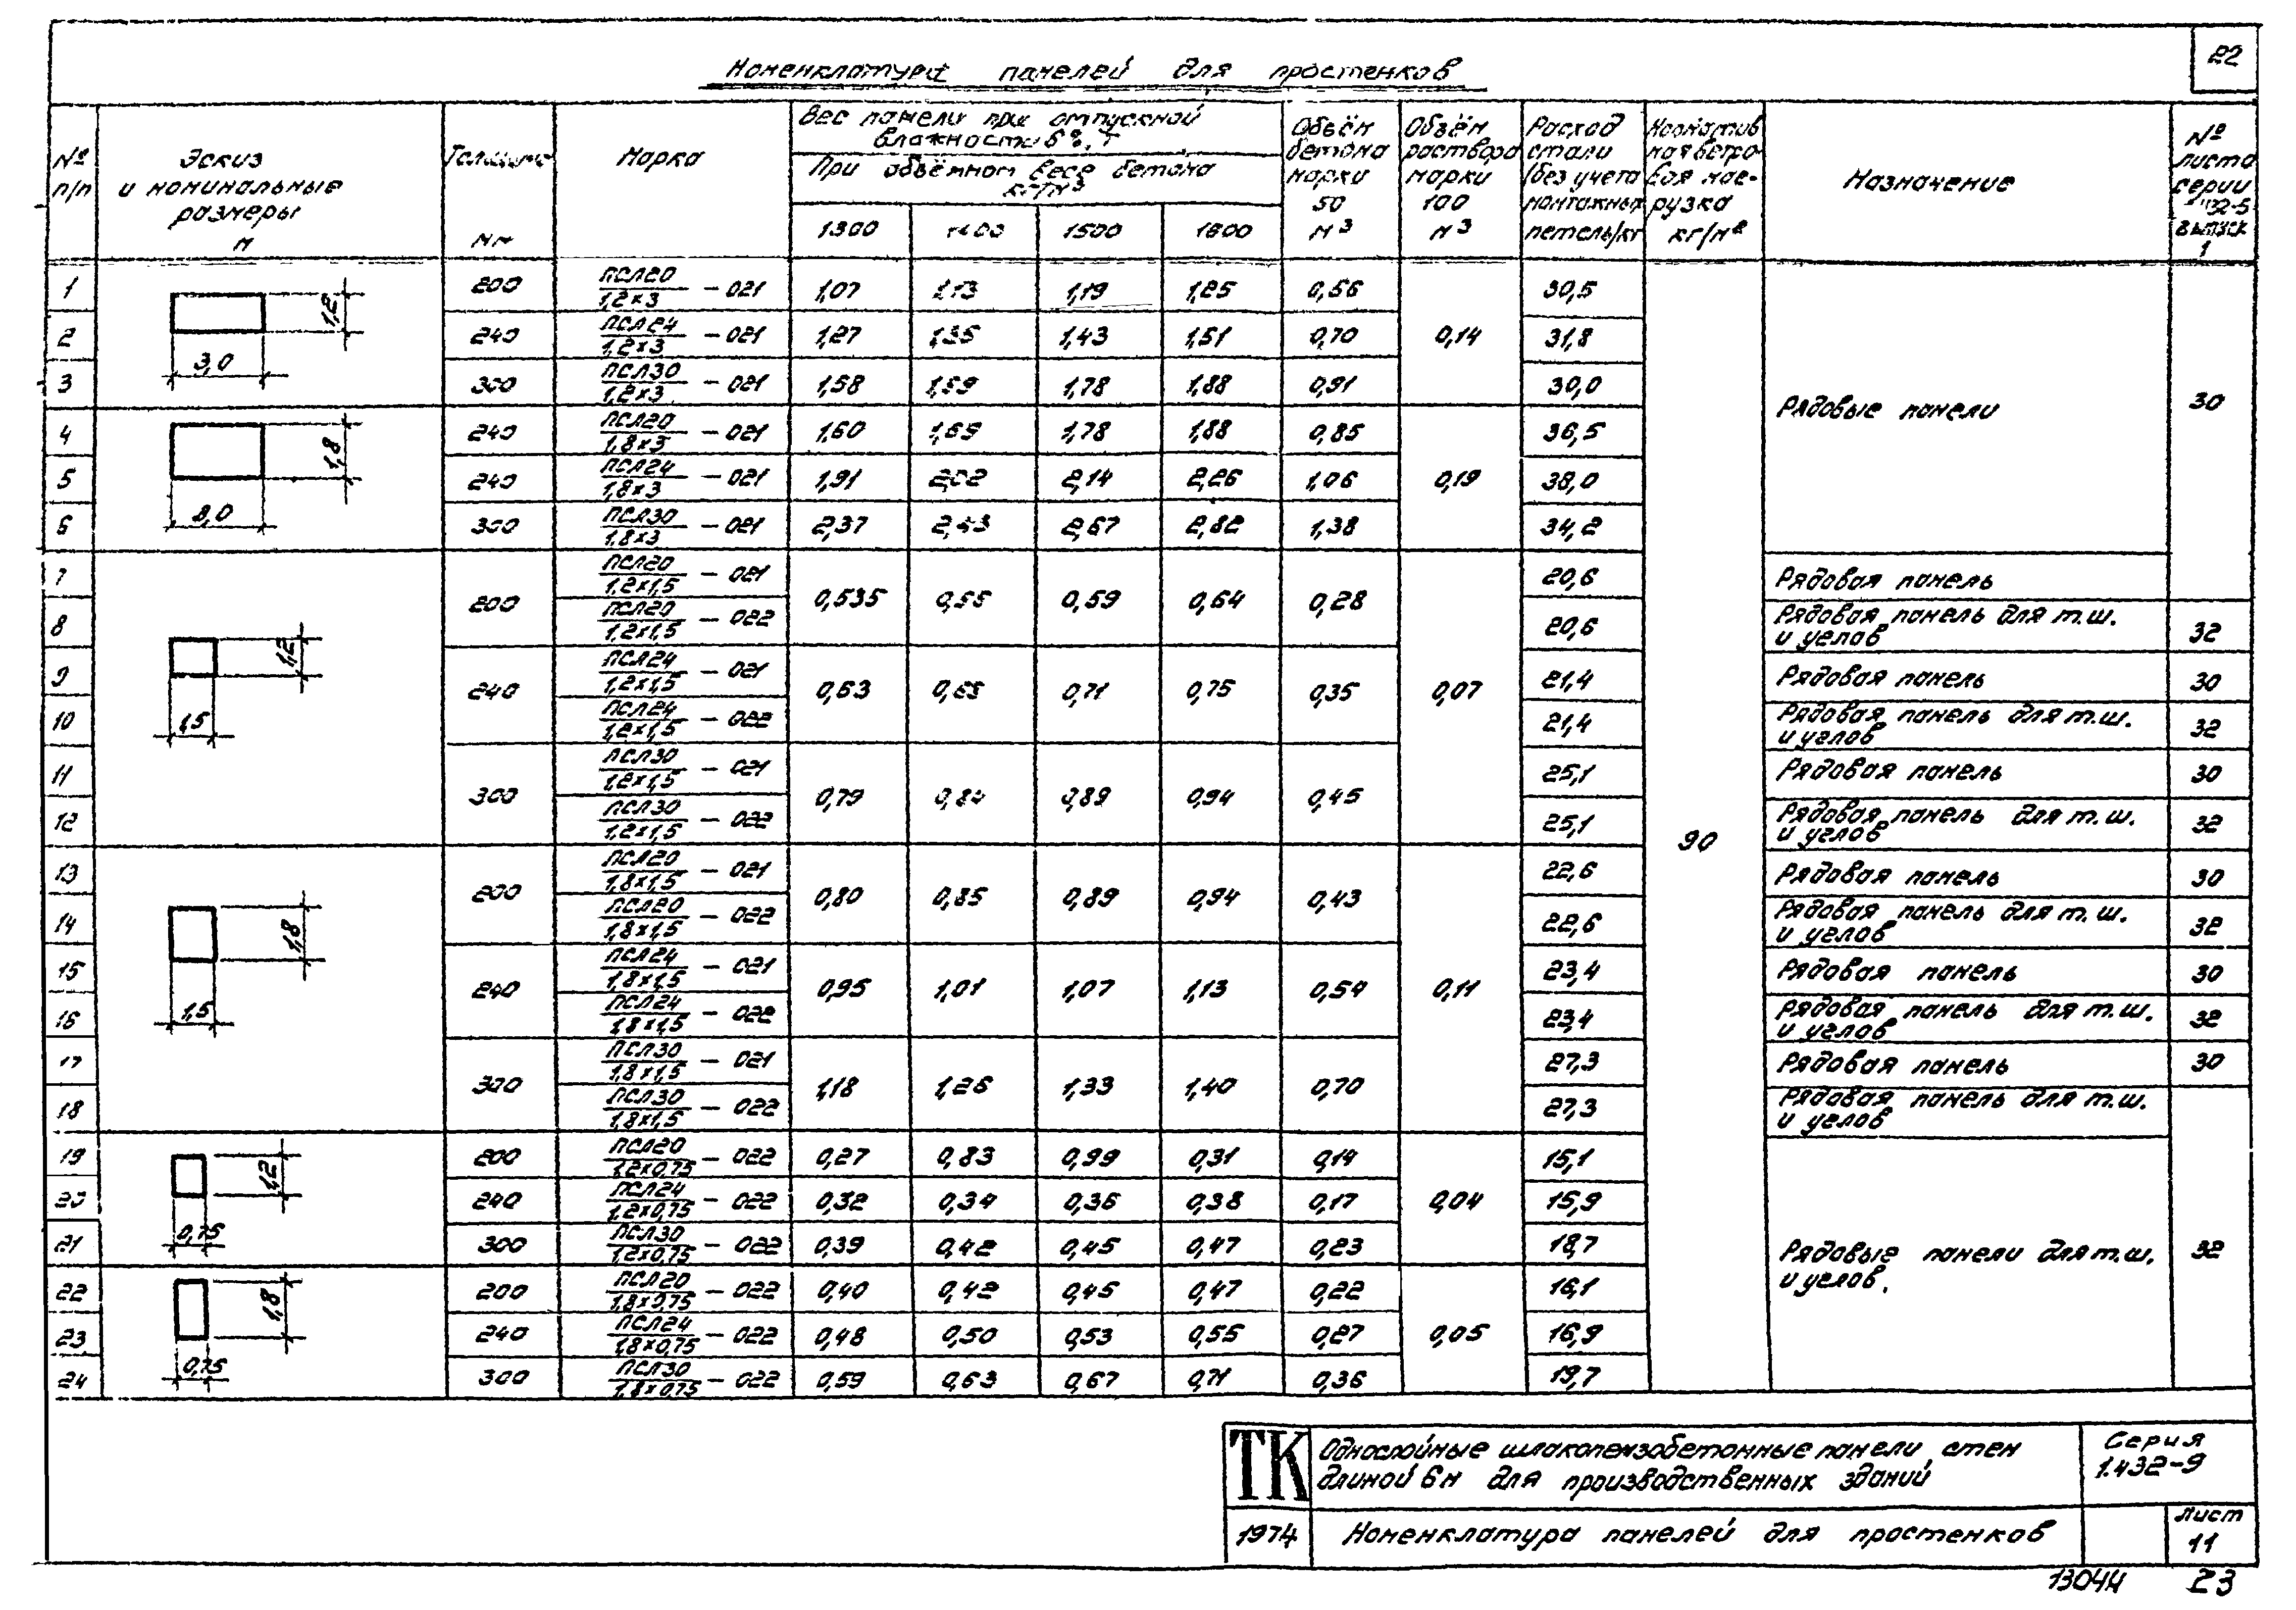 22
Номенклатура панелей для простенков
№ п/п
Эскиз и номинальные размеры м
Толщина мм
Марка
Вес панели при отпускной влажности 6%, т
При объёмном весе бетона кг/м³
1300 1400 1500 1600
Объём бетона марки 50 м³
Объём раствора марки 100 м³
Расход стали (без учета монтажных петель) кг
Нормативная ветровая нагрузка кг/м²
Назначение
№ листа серии 432-5 выпуск 1
1 200 ПСЛ20/1,2×3 – 021 1,07 1,13 1,19 1,25 0,56 30,5
1,2
2 240 ПСЛ24/1,2×3 – 021 1,27 1,35 1,43 1,51 0,70 0,14 31,8
3,0
3 300 ПСЛ30/1,2×3 – 021 1,58 1,59 1,78 1,88 0,91 30,0
Рядовые панели 30
4 240 ПСЛ20/1,8×3 – 021 1,60 1,69 1,78 1,88 0,85 36,5
1,8
5 240 ПСЛ24/1,8×3 – 021 1,91 2,02 2,14 2,26 1,06 0,19 38,0
3,0
6 300 ПСЛ30/1,8×3 – 021 2,37 2,43 2,67 2,82 1,38 34,2
7 ПСЛ20/1,2×1,5 – 021 20,6 Рядовая панель
200 0,535 0,55 0,59 0,64 0,28
8 ПСЛ20/1,2×1,5 – 022 20,6 Рядовая панель для т.ш. и углов 32
1,2
9 ПСЛ24/1,2×1,5 – 021 21,4 Рядовая панель 30
240 0,63 0,65 0,71 0,75 0,35 0,07
10 1,5 ПСЛ24/1,2×1,5 – 022 21,4 Рядовая панель для т.ш. и углов 32
11 ПСЛ30/1,2×1,5 – 021 25,1 Рядовая панель 30
300 0,79 0,84 0,89 0,94 0,45
12 ПСЛ30/1,2×1,5 – 022 25,1 Рядовая панель для т.ш. и углов 32
90
13 ПСЛ20/1,8×1,5 – 021 22,6 Рядовая панель 30
200 0,80 0,85 0,89 0,94 0,43
14 ПСЛ20/1,8×1,5 – 022 22,6 Рядовая панель для т.ш. и углов 32
1,8
15 ПСЛ24/1,8×1,5 – 021 23,4 Рядовая панель 30
240 0,95 1,01 1,07 1,13 0,54 0,11
16 1,5 ПСЛ24/1,8×1,5 – 022 23,4 Рядовая панель для т.ш. и углов 32
17 ПСЛ30/1,8×1,5 – 021 27,3 Рядовая панель 30
300 1,18 1,26 1,33 1,40 0,70
18 ПСЛ30/1,8×1,5 – 022 27,3 Рядовая панель для т.ш. и углов
19 200 ПСЛ20/1,2×0,75 – 022 0,27 0,83 0,99 0,31 0,14 15,1
1,2
20 240 ПСЛ24/1,2×0,75 – 022 0,32 0,34 0,36 0,38 0,17 0,04 15,9
0,75
21 300 ПСЛ30/1,2×0,75 – 022 0,39 0,42 0,45 0,47 0,23 18,7
Рядовые панели для т.ш. и углов. 32
22 200 ПСЛ20/1,8×0,75 – 022 0,40 0,42 0,45 0,47 0,22 16,1
1,8
23 240 ПСЛ24/1,8×0,75 – 022 0,48 0,50 0,53 0,55 0,27 0,05 16,9
0,75
24 300 ПСЛ30/1,8×0,75 – 022 0,59 0,63 0,67 0,71 0,36 19,7
ТК
Однослойные шлакопемзобетонные панели стен
длиной 6м для производственных зданий
Серия
1.432-9
1974
Номенклатура панелей для простенков
Лист
11
13044 23